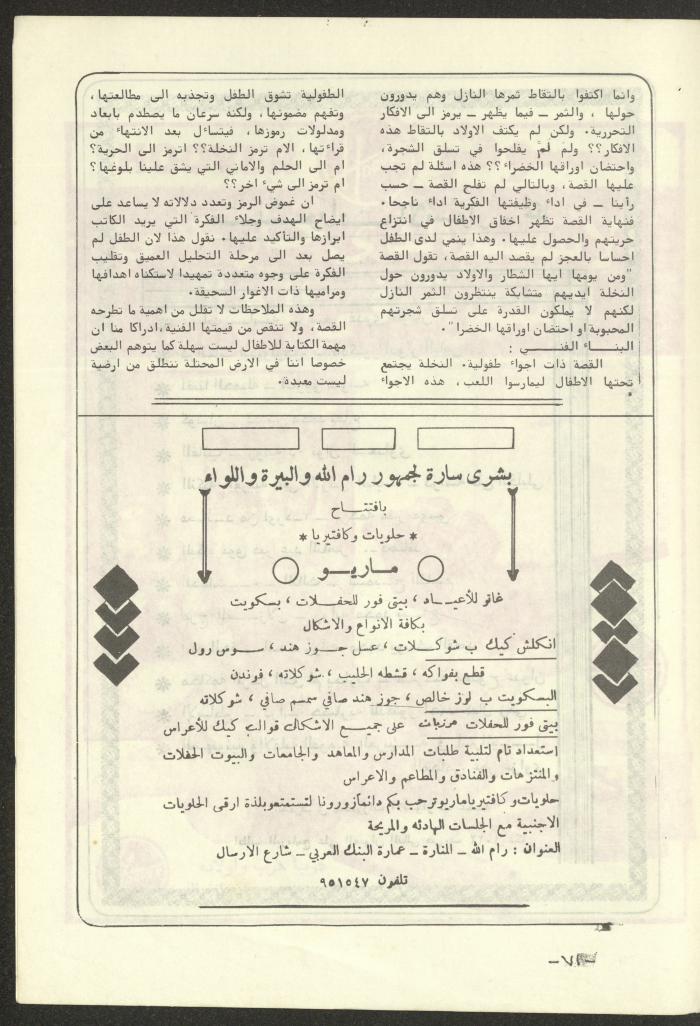 وانما اكتفوا بالتقاط ثمرها النازل وهم يدورون
حولها ، والثمر ــ فيما يظهر ــ يرمز الى الافكار
التحررية. ولكن لم يكتف الاولاد بالتقاط هذه
الافكار؟؟ ولم لم يفلحوا في تسلق الشجرة،
واحتضان اوراقها الخضراء؟؟ هذه اسئلة لم تجب
عليها القصة، وبالتالي لم تفلح القصة ــ حسب
رأينا ــ في اداء وظيفتها الفكرية اداء ناجحا.
فنهاية القصة تظهر اخفاق الاطفال في انتزاع
حريتهم والحصول عليها. وهذا ينمي لدى الطفل
احساسا بالعجز لم يقصد اليه القصة، تقول القصة
"ومن يومها ايها الشطار والاولاد يدورون حول
النخلة ايديهم متشابكة ينتظرون الثمر النازل
لكنهم لا يملكون القدرة على تسلق شجرتهم
المحبوبة او احتضان اوراقها الخضرا".
البنـــاء الفنـــــي :
القصة ذات اجواء طفولية. النخلة يجتمع
تحتها الاطفال ليمارسوا اللعب، هذه الاجواء
الطفولية تشوق الطفل وتجذبه الى مطالعتها،
وتفهم مضمونها، ولكنه سرعان ما يصطدم بابعاد
ومدلولات رموزها، فيتساءل بعد الانتهاء من
قراءتها، الام ترمز النخلة؟؟ اترمز الى الحرية؟
ام الى الحلم والاماني التي يشق علينا بلوغها؟
ام ترمز الى شيء اخر؟؟
ان غموض الرمز وتعدد دلالاته لا يساعد على
ايضاح الهدف وجلاء الفكرة التي يريد الكاتب
ابرازها والتأكيد عليها. نقول هذا لان الطفل لم
يصل بعد الى مرحلة التحليل العميق وتقليب
الفكرة على وجوه متعددة تمهيدا لاستكناه اهدافها
ومراميها ذات الاغوار السحيقة.
وهذه الملاحظات لا تقلل من اهمية ما تطرحه
القصة، ولا تنقص من قيمتها الفنية، ادراكا منا ان
مهمة الكتابة للاطفال ليست سهلة كما يتوهم البعض
خصوصا اننا في الارض المحتلة ننطلق من ارضية
ليست معبدة.
بشرى سارة لجمهور رام الله والبيرة واللواء
بافتتــــاح
* حلويات وكافتيريا *
مـاريــو
غاتو للأعيــاد ، بيتي فور للحفــلات ، بسكويت
بكافة الانواع والاشكال
انكلش كيك ب شوكــلات ، عسل جــوز هند ، ســوس رول
قطع بفواكه ، قشطه الحليب ، شوكلاته ، فوندن
البسكويت ب لوز خالص ، جوز هند صافي سمسم صافي ، شوكلاته
بيتي فور للحفلات مرتبات على جميــع الاشكال قوالب كيك للأعراس
استعداد تام لتلبية طلبات المدارس والمعاهد والجامعات والبيوت الحفلات
والمنتزهات والفنادق والمطاعم والاعراس
حلويات وكافتيريا ماريو ترحب بكم دائما زورونا لتستمتعو بلذة ارقى الحلويات
الاجنبية مع الجلسات الهادئه والمريحة
العنوان : رام الله ــ المنارة ــ عمارة البنك العربي ــ شارع الارسال
تلفون ٩٥١٥٤٧